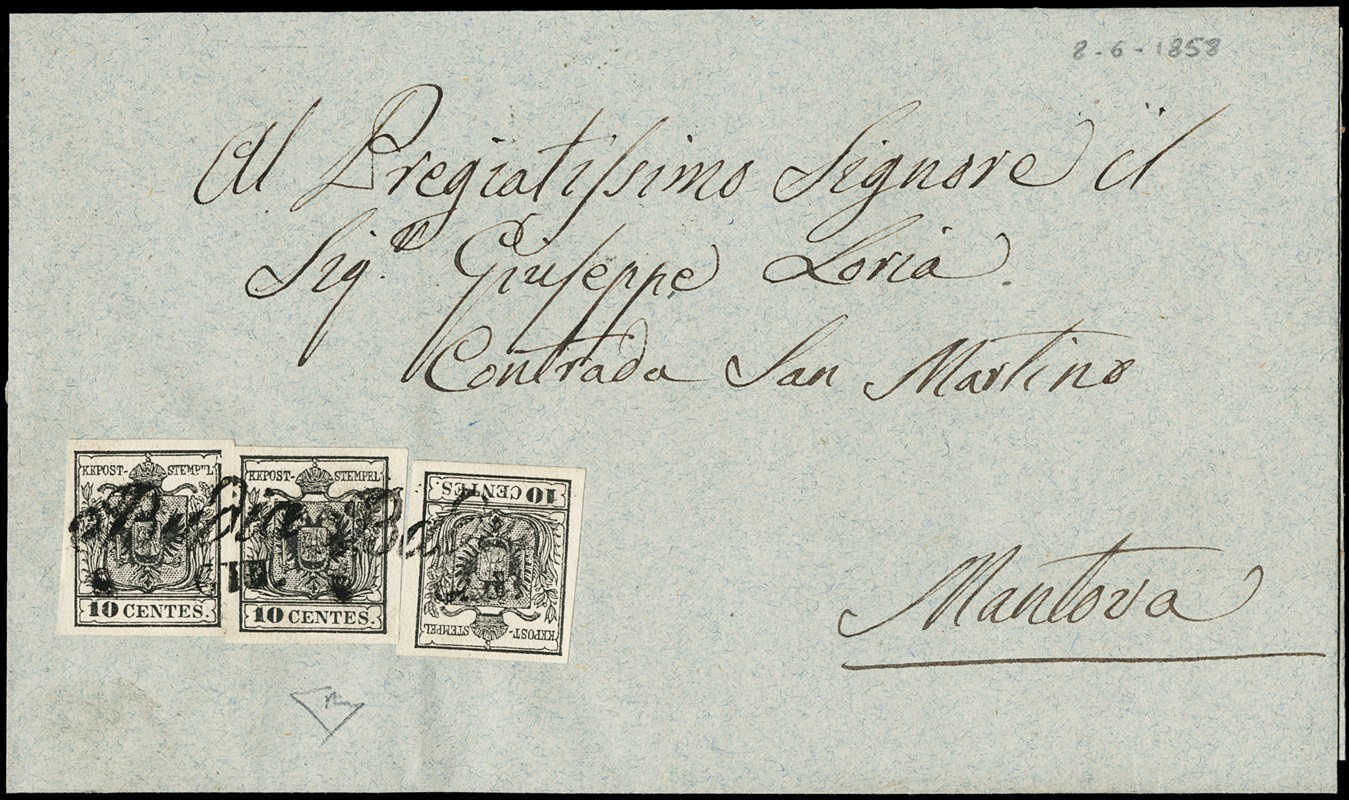 8-6-1858
Al Pregiatissimo Signore il
Sig.r Giuseppe Loria
Contrada San Martino
KKPOST- STEMPEL
KKPOST- STEMPEL
10 CENTES.
10 CENTES.
10 CENTES.
KKPOST- STEMPEL
Mantova